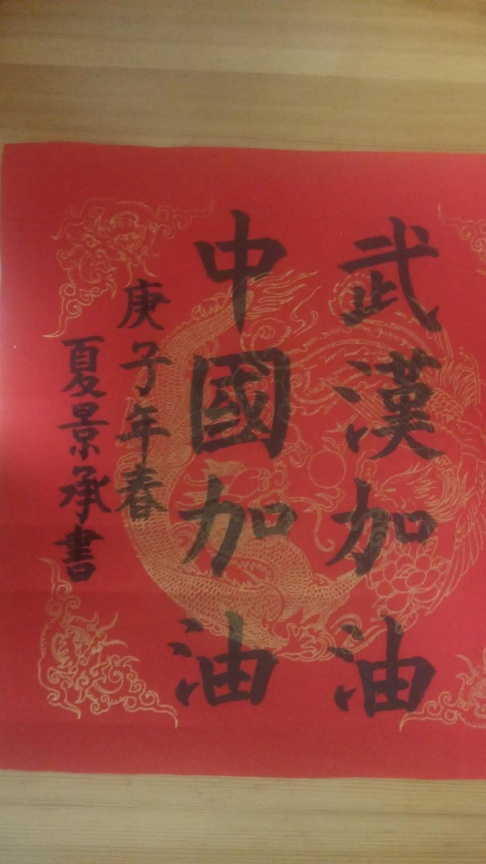 武漢加油
中國加油
庚子年春
夏景承書